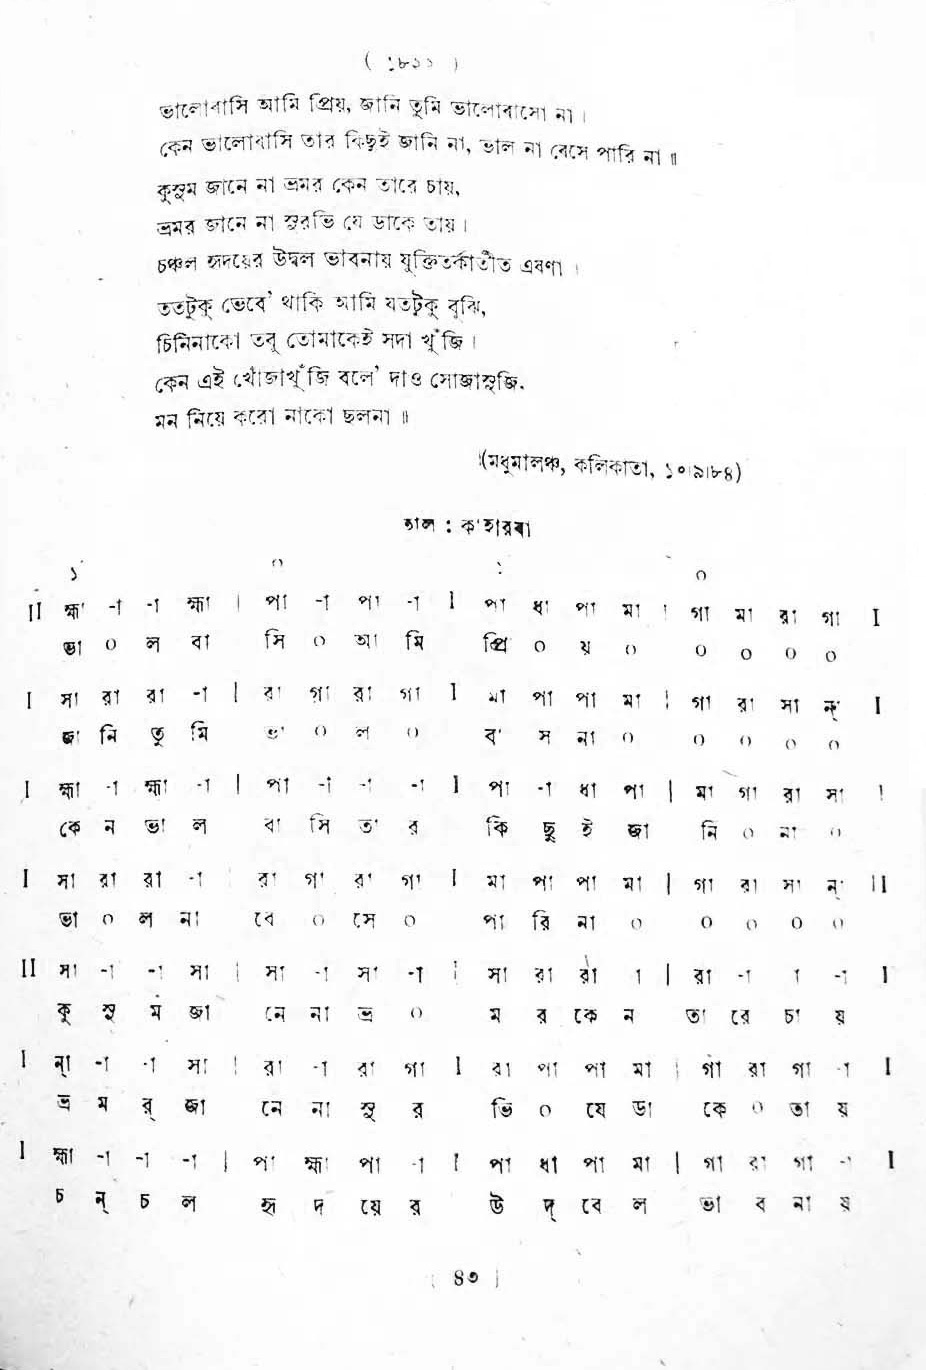 ( ১৮১১ )
ভালোবাসি আমি প্রিয়, জানি তুমি ভালোবাসো না ।
কেন ভালোবাসি তার কিছুই জানি না, ভাল না বেসে পারি না ॥
কুসুম জানে না ভ্রমর কেন তারে চায়,
ভ্রমর জানে না সুরভি যে ডাকে তায় ।
চঞ্চল হৃদয়ের উদ্বল ভাবনায় যুক্তিতর্কাতীত এষণা ।
ততটুকু ভেবে’ থাকি আমি যতটুকু বুঝি,
চিনিনাকো তবু তোমাকেই সদা খুঁজি ।
কেন এই খোঁজাখুঁজি বলে’ দাও সোজাসুজি.
মন নিয়ে করো নাকো ছলনা ॥
(মধুমালঞ্চ, কলিকাতা, ১০।৯।৮৪)
তাল : কাহারবা
১ ০ ১ ০
II হ্মা -া -া হ্মা | পা -া পা -া I পা ধা পা মা | গা মা রা গা I
ভা ০ ল বা সি ০ আ মি প্রি ০ য় ০ ০ ০ ০ ০
I সা রা রা -া | রা গা রা গা I মা পা পা মা | গা রা সা ন্ I
জা নি তু মি ভা ০ ল ০ বা স না ০ ০ ০ ০ ০
I হ্মা -া হ্মা -া | পা -া -া -া I পা -া ধা পা | মা গা রা সা I
কে ন ভা ল বা সি তা র কি ছু ই জা নি ০ না ০
I সা রা রা -া রা গা রা গা I মা পা পা মা | গা রা সা ন্ II
ভা ০ ল না বে ০ সে ০ পা রি না ০ ০ ০ ০ ০
II সা -া -া সা | সা -া সা -া I সা রা রা া | রা -া া -া I
কু সু ম জা নে না ভ্র ০ ম র কে ন তা রে চা য়
I ন্া -া -া সা | রা -া রা গা I রা পা পা মা | গা রা গা -া I
ভ্র ম র্ জা নে না সু র ভি ০ যে ডা কে ০ তা য়
I হ্মা -া -া -া | পা হ্মা পা -া I পা ধা পা মা | গা রা গা -া I
চ ন্ চ ল হৃ দ য়ে র উ দ্ বে ল ভা ব না য়
| ৪৩ |